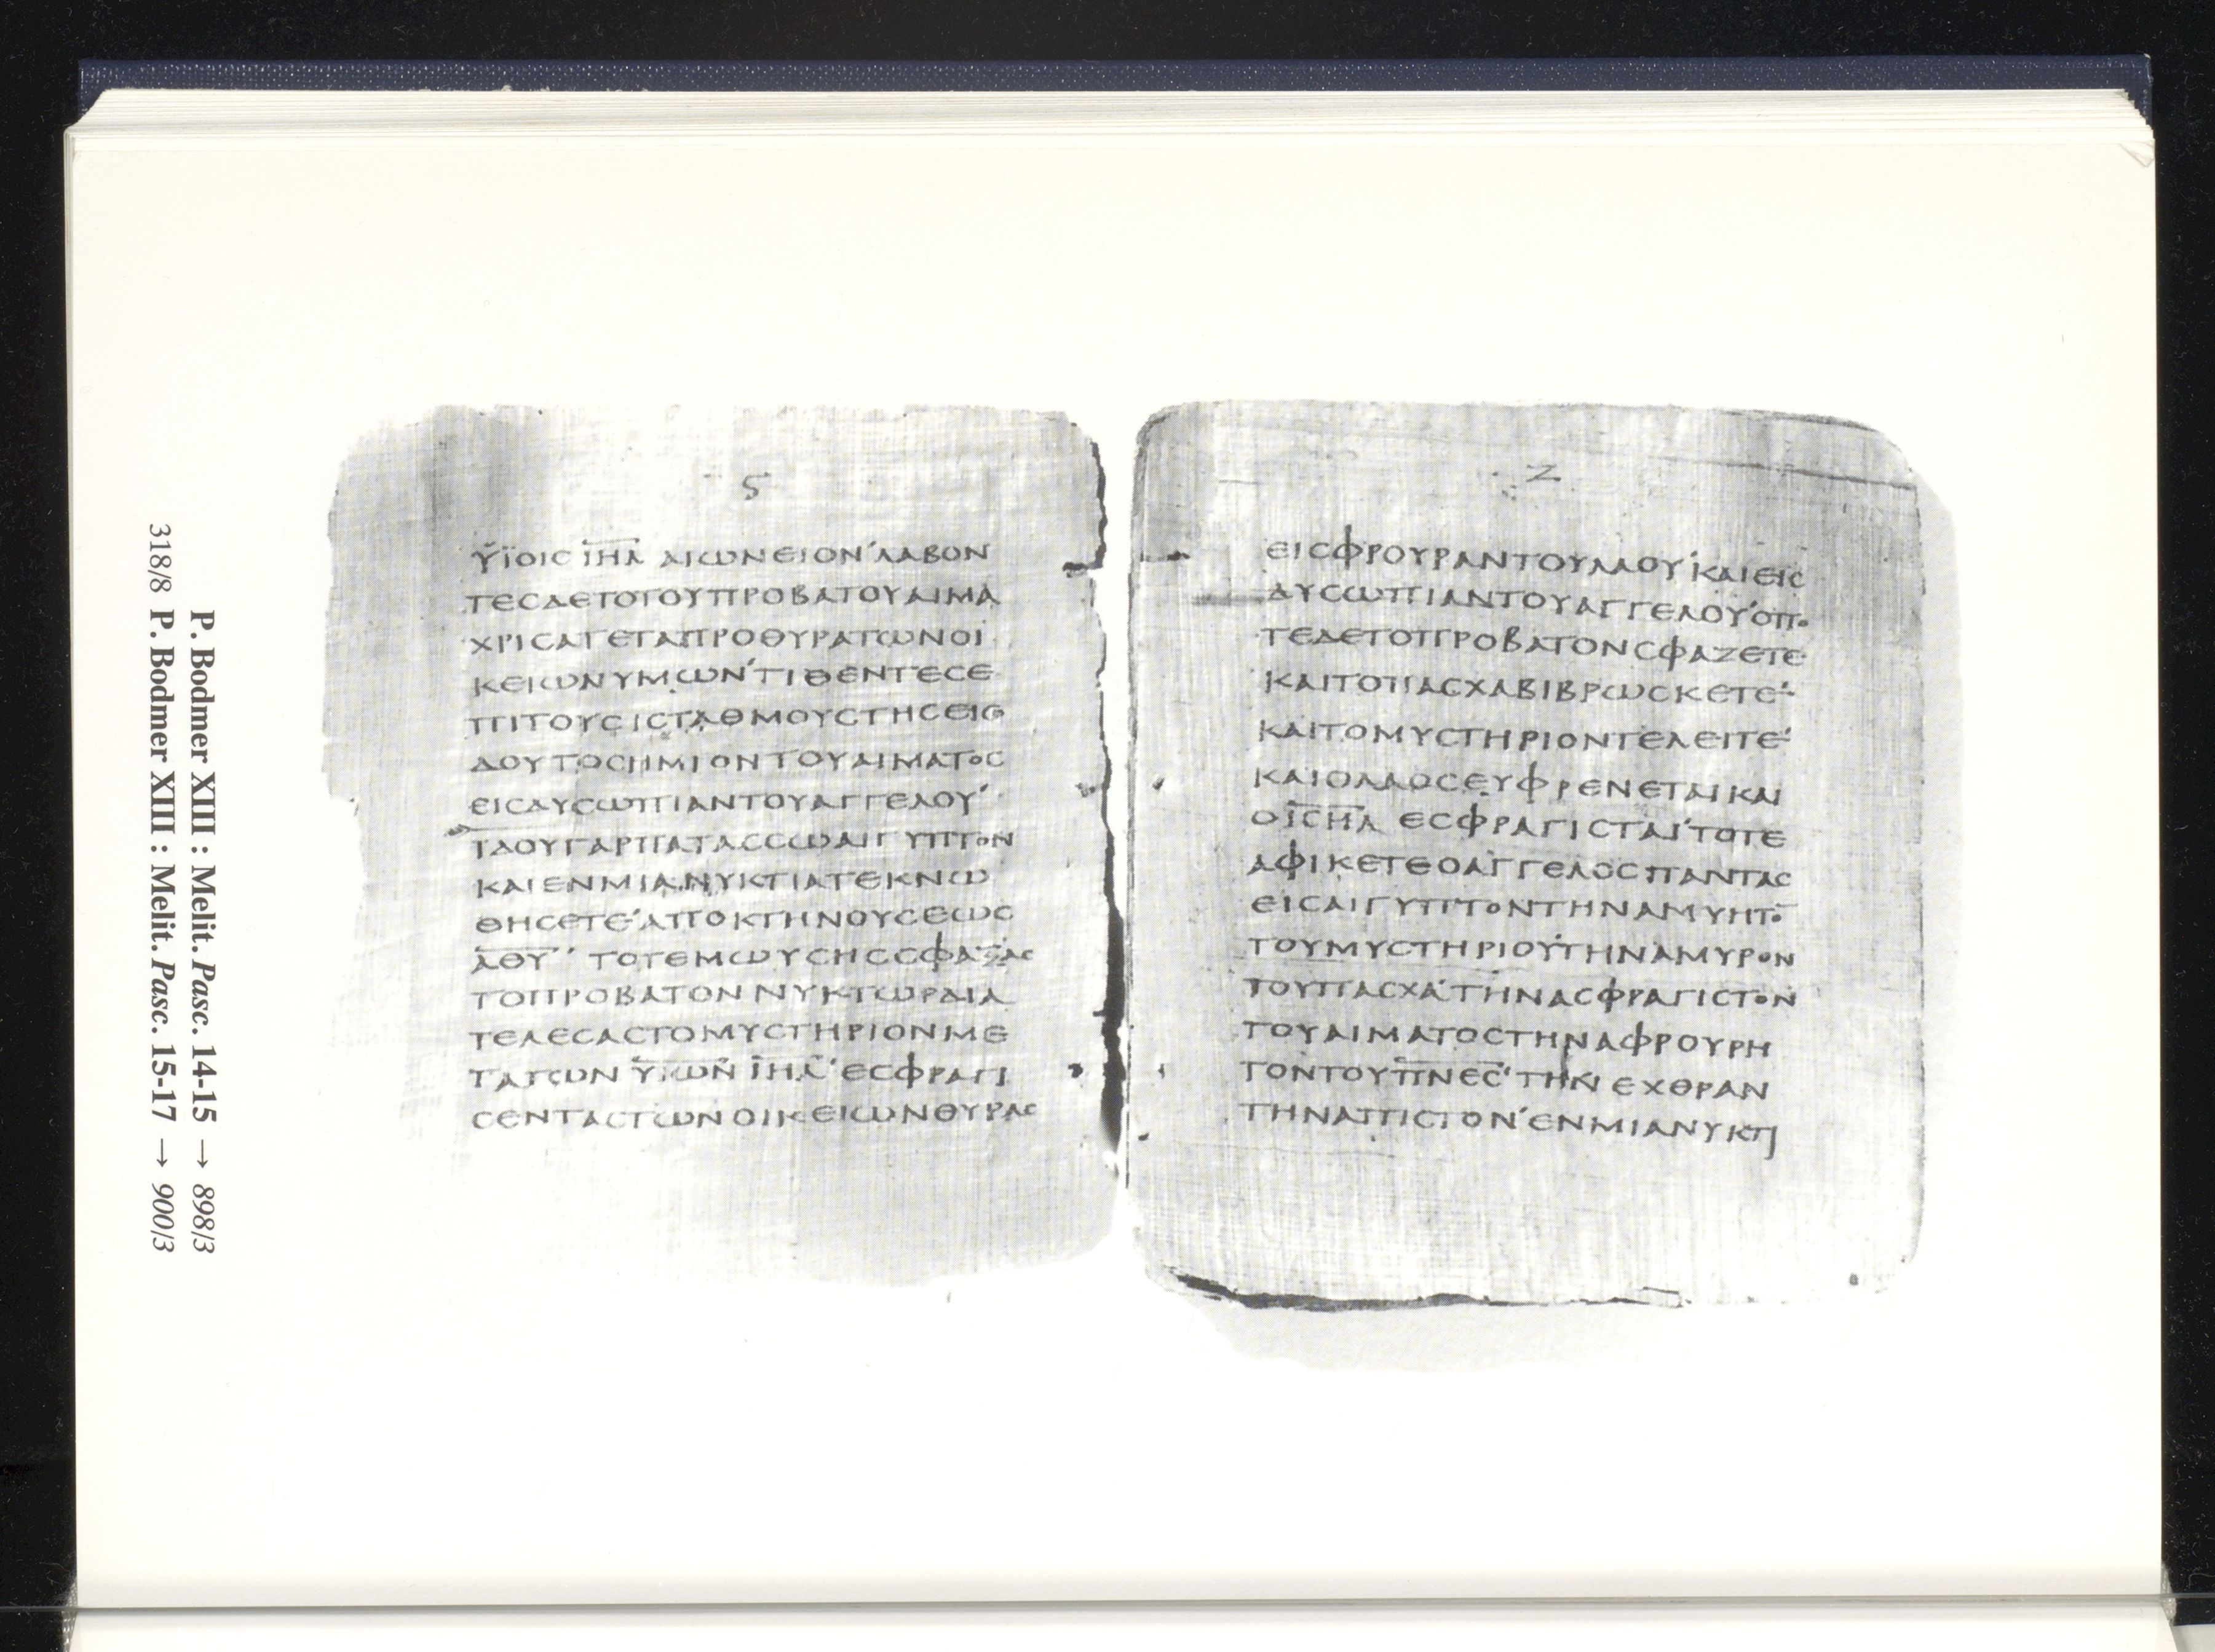 P. Bodmer XIII : Melit. Pasc. 14-15 → 898/3
318/8 P. Bodmer XIII : Melit. Pasc. 15-17 → 900/3
ϛ
ΫΪΟΙϹ ΪΗ̅Λ̅ ΑΙΩΝΕΙΟΝ'ΛΑΒΟΝ
ΤΕϹΔΕΤΟΤΟΥΠΡΟΒΑΤΟΥΑΙΜΑ
ΧΡΙϹΑΓΕΤΑΠΡΟΘΥΡΑΤΩΝΟΙ
ΚΕΙΩΝΥΜΩΝ'ΤΙΘΕΝΤΕϹΕ
ΠΙΤΟΥϹΙϹΤΑΘΜΟΥϹΤΗϹΕΙϹ
ΔΟΥΤΟϹΗΜΙΟΝΤΟΥΑΙΜΑΤΟϹ
ΕΙϹΔΥϹΩΠΙΑΝΤΟΥΑΓΓΕΛΟΥ'
ΙΔΟΥΓΑΡΠΑΤΑϹϹΩΑΙΓΥΠΤΟΝ
ΚΑΙΕΝΜΙΑΝΥΚΤΙΑΤΕΚΝΩ
ΘΗϹΕΤΕ'ΑΠΟΚΤΗΝΟΥϹΕΩϹ
Α̅Θ̅Υ̅' ΤΟΤΕΜΩΥϹΗϹϹΦΑΞΑϹ
ΤΟΠΡΟΒΑΤΟΝΝΥΚΤΩΡΔΙΑ
ΤΕΛΕϹΑϹΤΟΜΥϹΤΗΡΙΟΝΜΕ
ΤΑΤΩΝ Υ̅Ι̅Ω̅Ν̅ Ϊ̅Η̅Λ̅' ΕϹΦΡΑΓΙ
ϹΕΝΤΑϹΤΩΝΟΙΚΕΙΩΝΘΥΡΑϹ
Ζ
ΕΙϹΦΡΟΥΡΑΝΤΟΥΛΑΟΥ'ΚΑΙΕΙϹ
ΔΥϹΩΠΙΑΝΤΟΥΑΓΓΕΛΟΥ'ΟΠΟ
ΤΕΔΕΤΟΠΡΟΒΑΤΟΝϹΦΑΖΕΤΕ
ΚΑΙΤΟΠΑϹΧΑΒΙΒΡΩϹΚΕΤΕ'
ΚΑΙΤΟΜΥϹΤΗΡΙΟΝΤΕΛΕΙΤΕ'
ΚΑΙΟΛΑΟϹΕΥΦΡΕΝΕΤΑΙΚΑΙ
ΟΪ̅Ϲ̅Η̅Λ̅ ΕϹΦΡΑΓΙϹΤΑΙ'ΤΟΤΕ
ΑΦΙΚΕΤΕΟΑΓΓΕΛΟϹΠΑΝΤΑϹ
ΕΙϹΑΙΓΥΠΤΟΝΤΗΝΑΜΥΗΤΟ̅
ΤΟΥΜΥϹΤΗΡΙΟΥ'ΤΗΝΑΜΥΡΟΝ
ΤΟΥΠΑϹΧΑ'ΤΗΝΑϹΦΡΑΓΙϹΤΟΝ
ΤΟΥΑΙΜΑΤΟϹΤΗΝΑΦΡΟΥΡΗ
ΤΟΝΤΟΥΠ̅Ν̅Ε̅Ϲ̅'ΤΗΝ ΕΧΘΡΑΝ
ΤΗΝΑΠΙϹΤΟΝ'ΕΝΜΙΑΝΥΚΤΙ